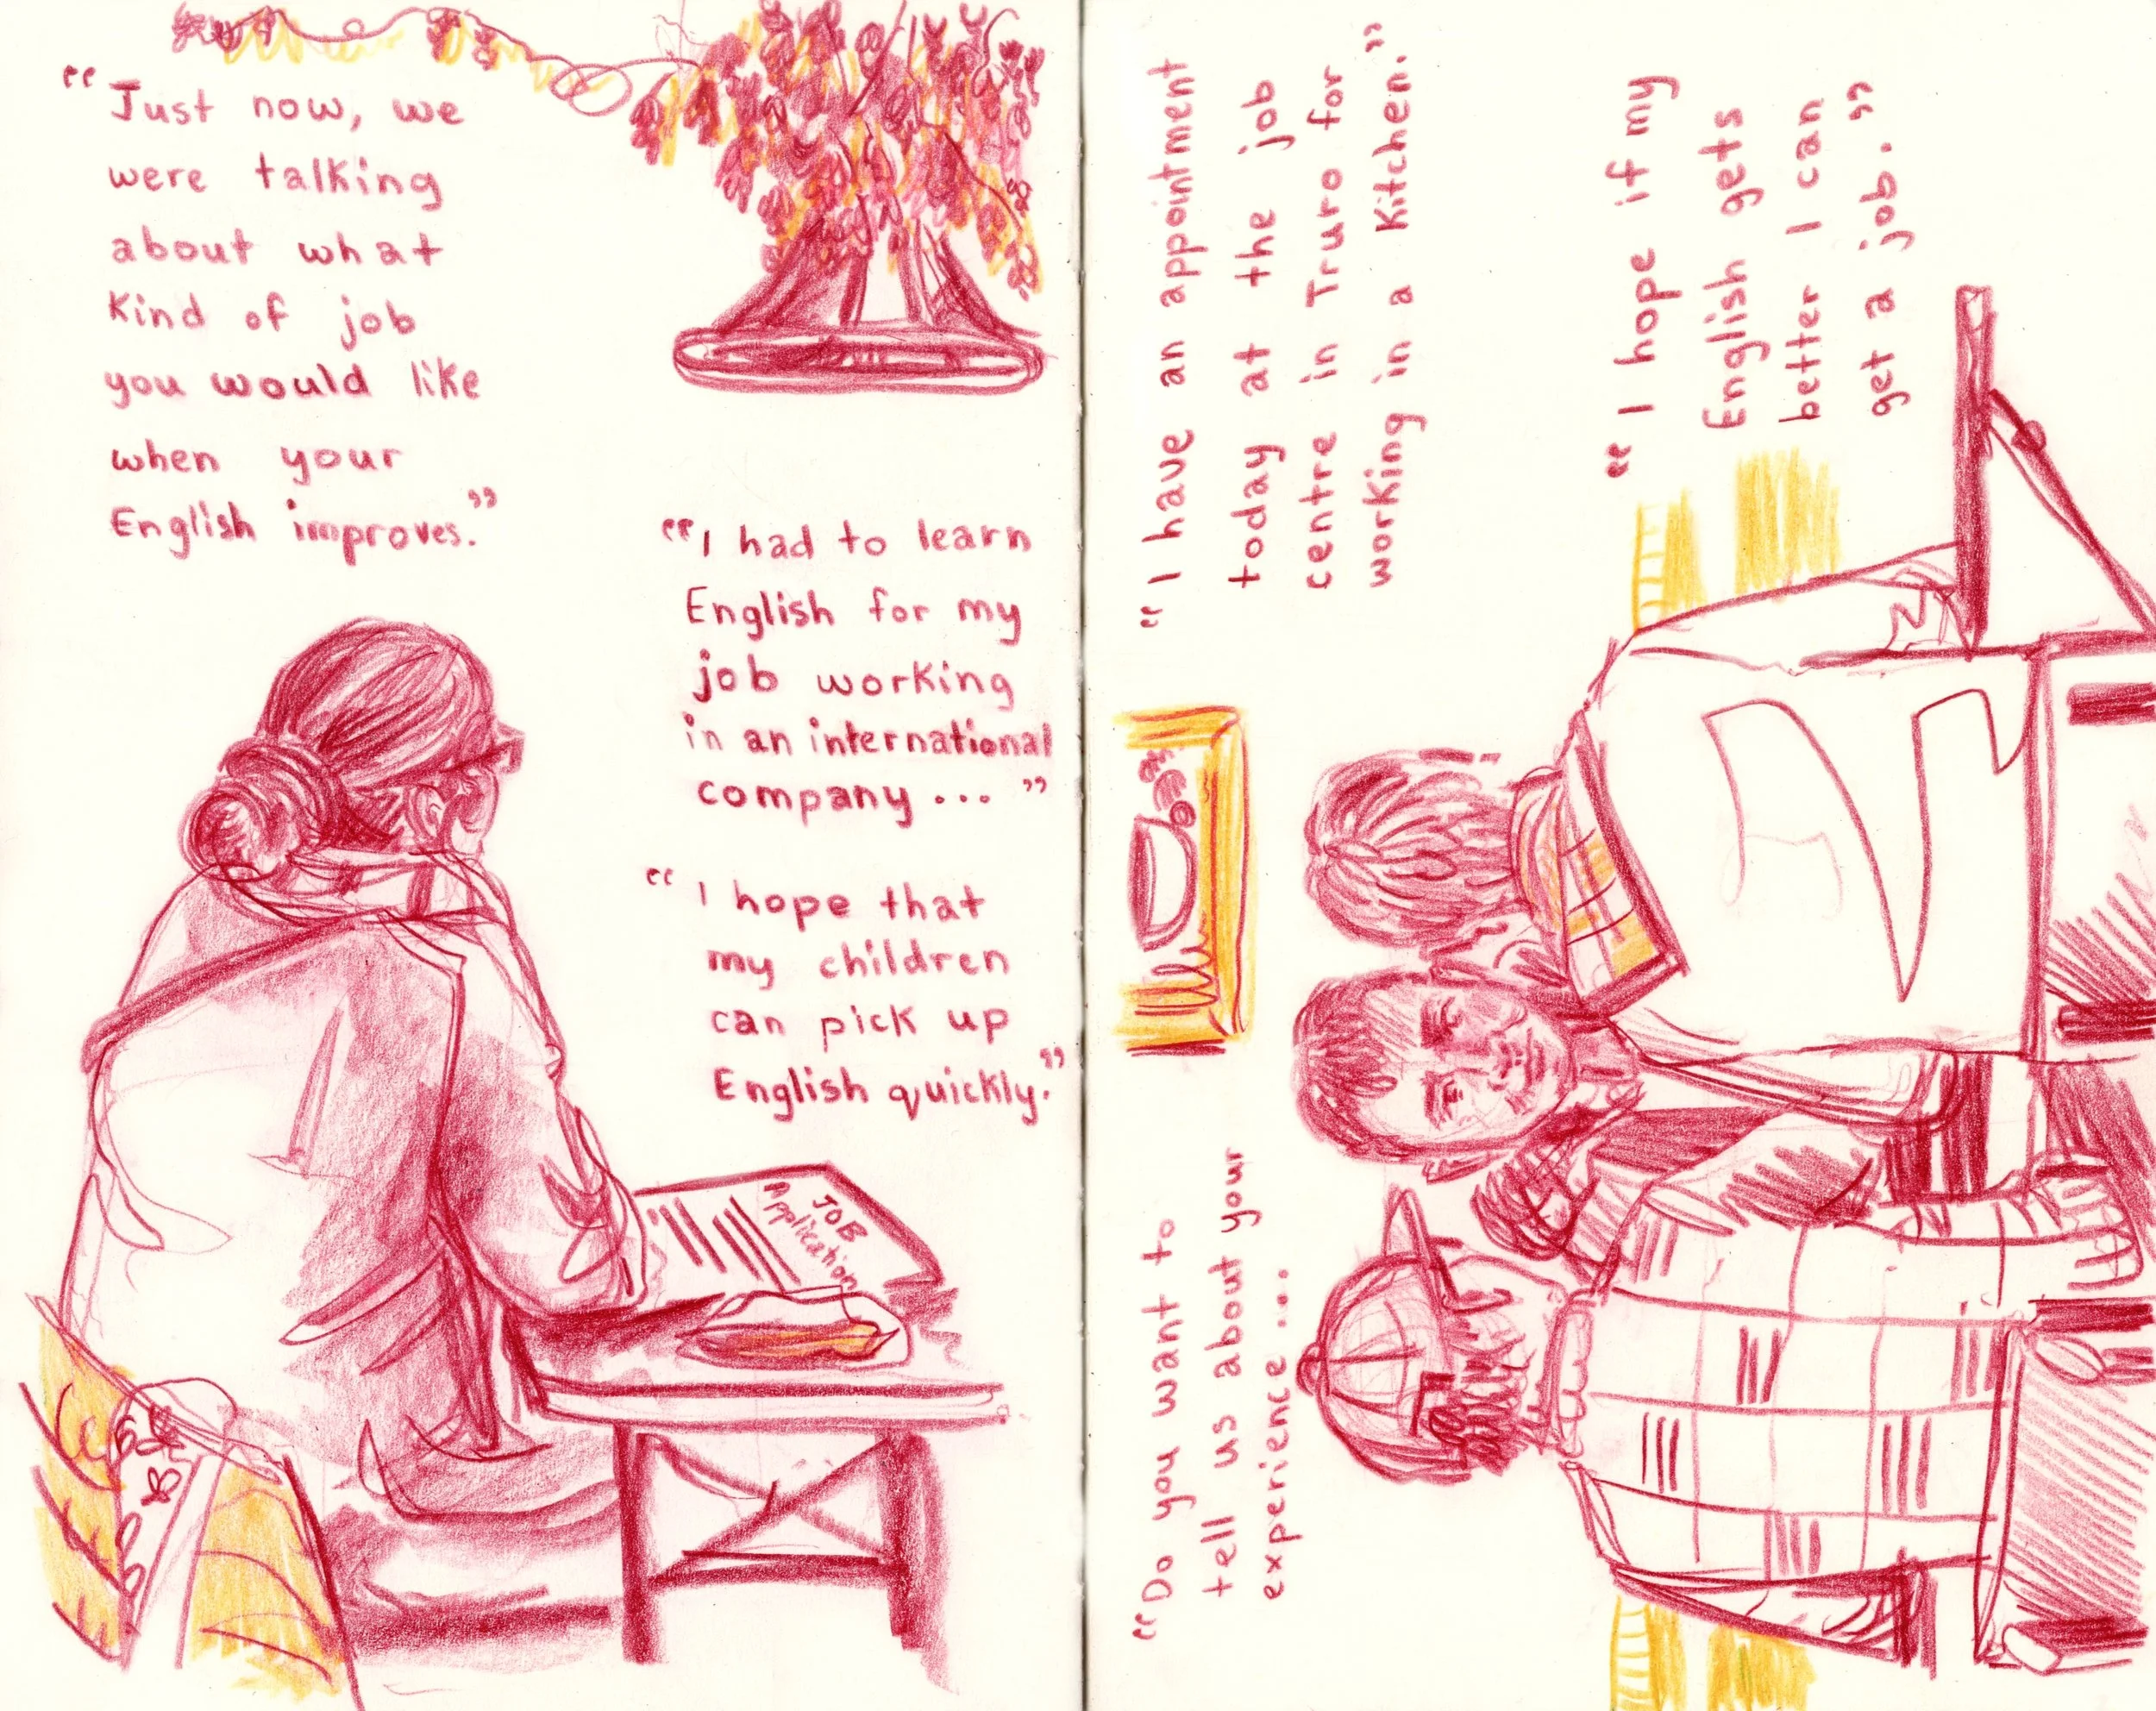 "Just now, we
were talking
about what
kind of job
you would like
when your
English improves."
"I had to learn
English for my
job working
in an international
company ... "
"I hope that
my children
can pick up
English quickly."
JOB
Application
"I have an appointment
today at the job
centre in Truro for
working in a kitchen."
"I hope if my
English gets
better I can
get a job."
"Do you want to
tell us about your
experience ....